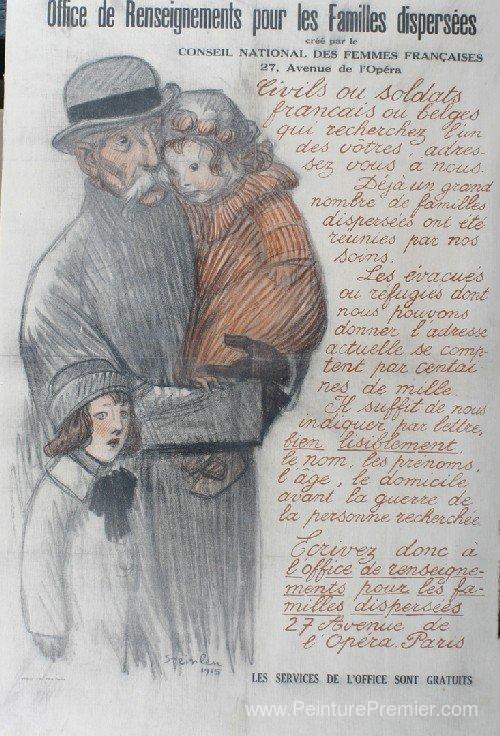 Office de Renseignements pour les Familles dispersées
créé par le
CONSEIL NATIONAL DES FEMMES FRANÇAISES
27, Avenue de l'Opéra
Civils ou soldats
français ou belges
qui recherchez l'un
des vôtres, adres-
sez vous à nous.
Déjà un grand
nombre de familles
dispersées ont été
réunies par nos
soins.
Les évacués
ou réfugiés dont
nous pouvons
donner l'adresse
actuelle se comp-
tent par centai
nes de mille.
Il suffit de nous
indiquer par lettre,
bien lisiblement,
le nom, les prénoms,
l'âge, le domicile
avant la guerre de
la personne recherchée.
Ecrivez donc à
l'office de renseigne-
ments pour les fa-
milles dispersées
27 Avenue de
l'Opéra. Paris
Steinlen
1915
LES SERVICES DE L'OFFICE SONT GRATUITS
www.PeinturePremier.com